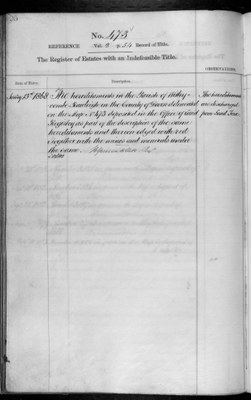 No. 473
REFERENCE Vol. 2 p. 54 Record of Title.
The Register of Estates with an Indefeasible Title.
OBSERVATIONS.
Date of Entry.
Description.
1868 The hereditaments in the Parish of
in the County of delineated
on the Map No. 473 deposited in the Office of Land
Registry as part of the description of the said
hereditaments and thereon edged with red
together with the mines and minerals under
the same.
The hereditaments
are discharged
from Land Tax